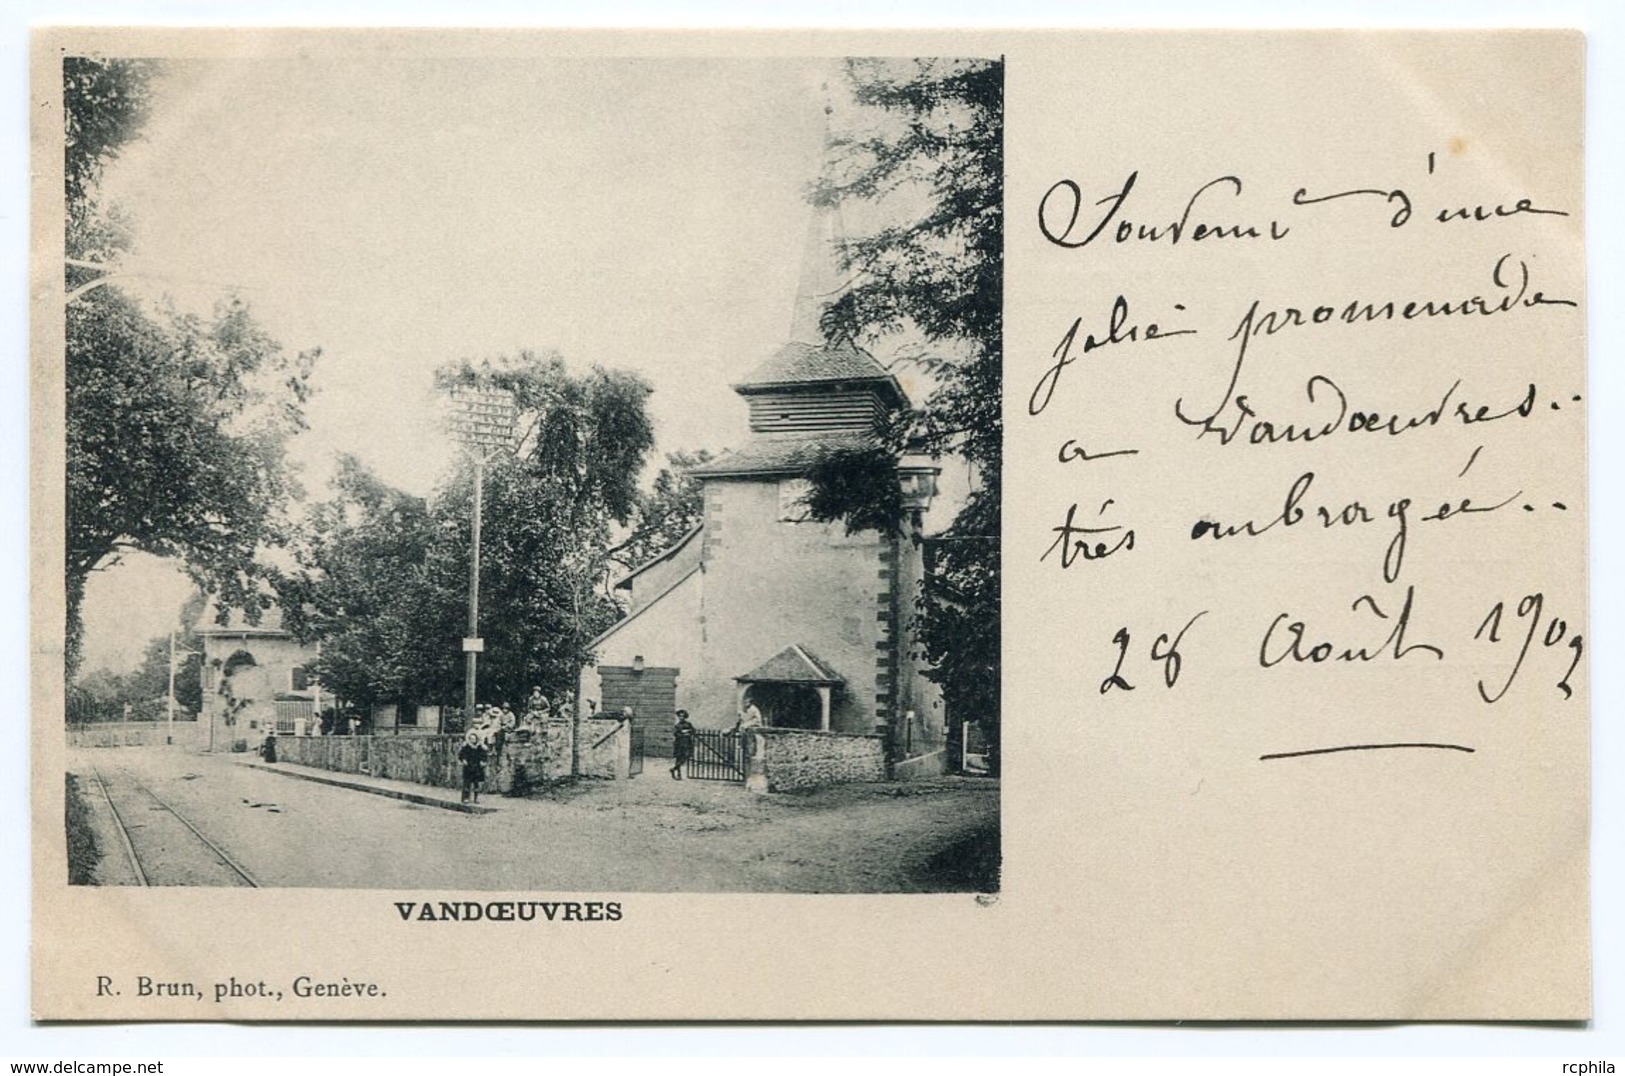 Souvenir d'une
jolie promenade
a Vandœuvres..
très ombragée..
28 Août 1902
VANDŒUVRES
R. Brun, phot., Genève.
www.delcampe.net
rcphila